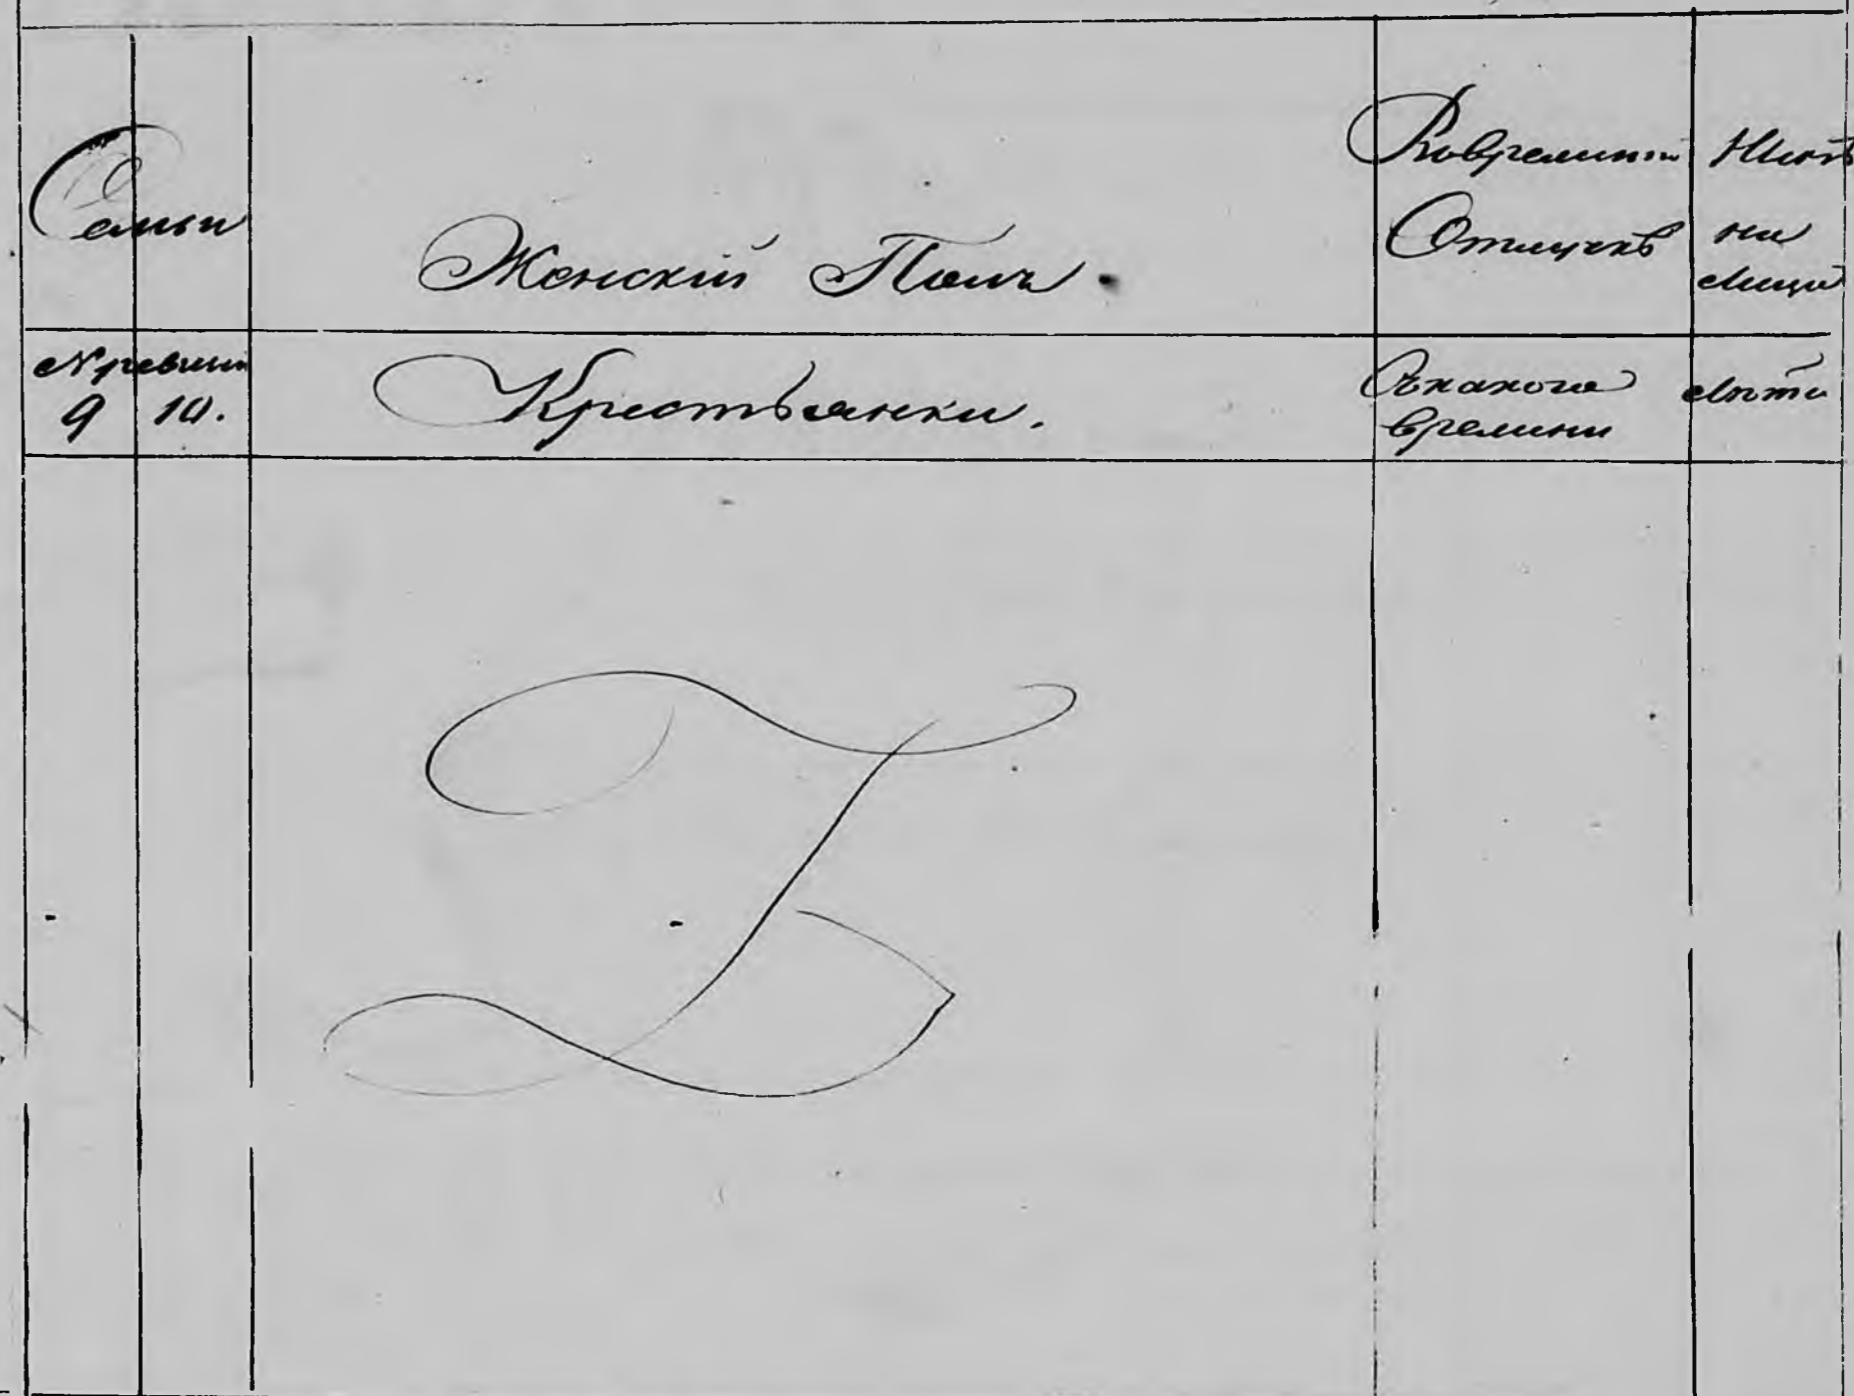 Семьи
Женскій Полъ.
Вовремянн Отлучкѣ
Нынѣ
на
Лицо
№ ревизіи
9 10.
Крестьянки.
Съкакого
времени
Лѣта